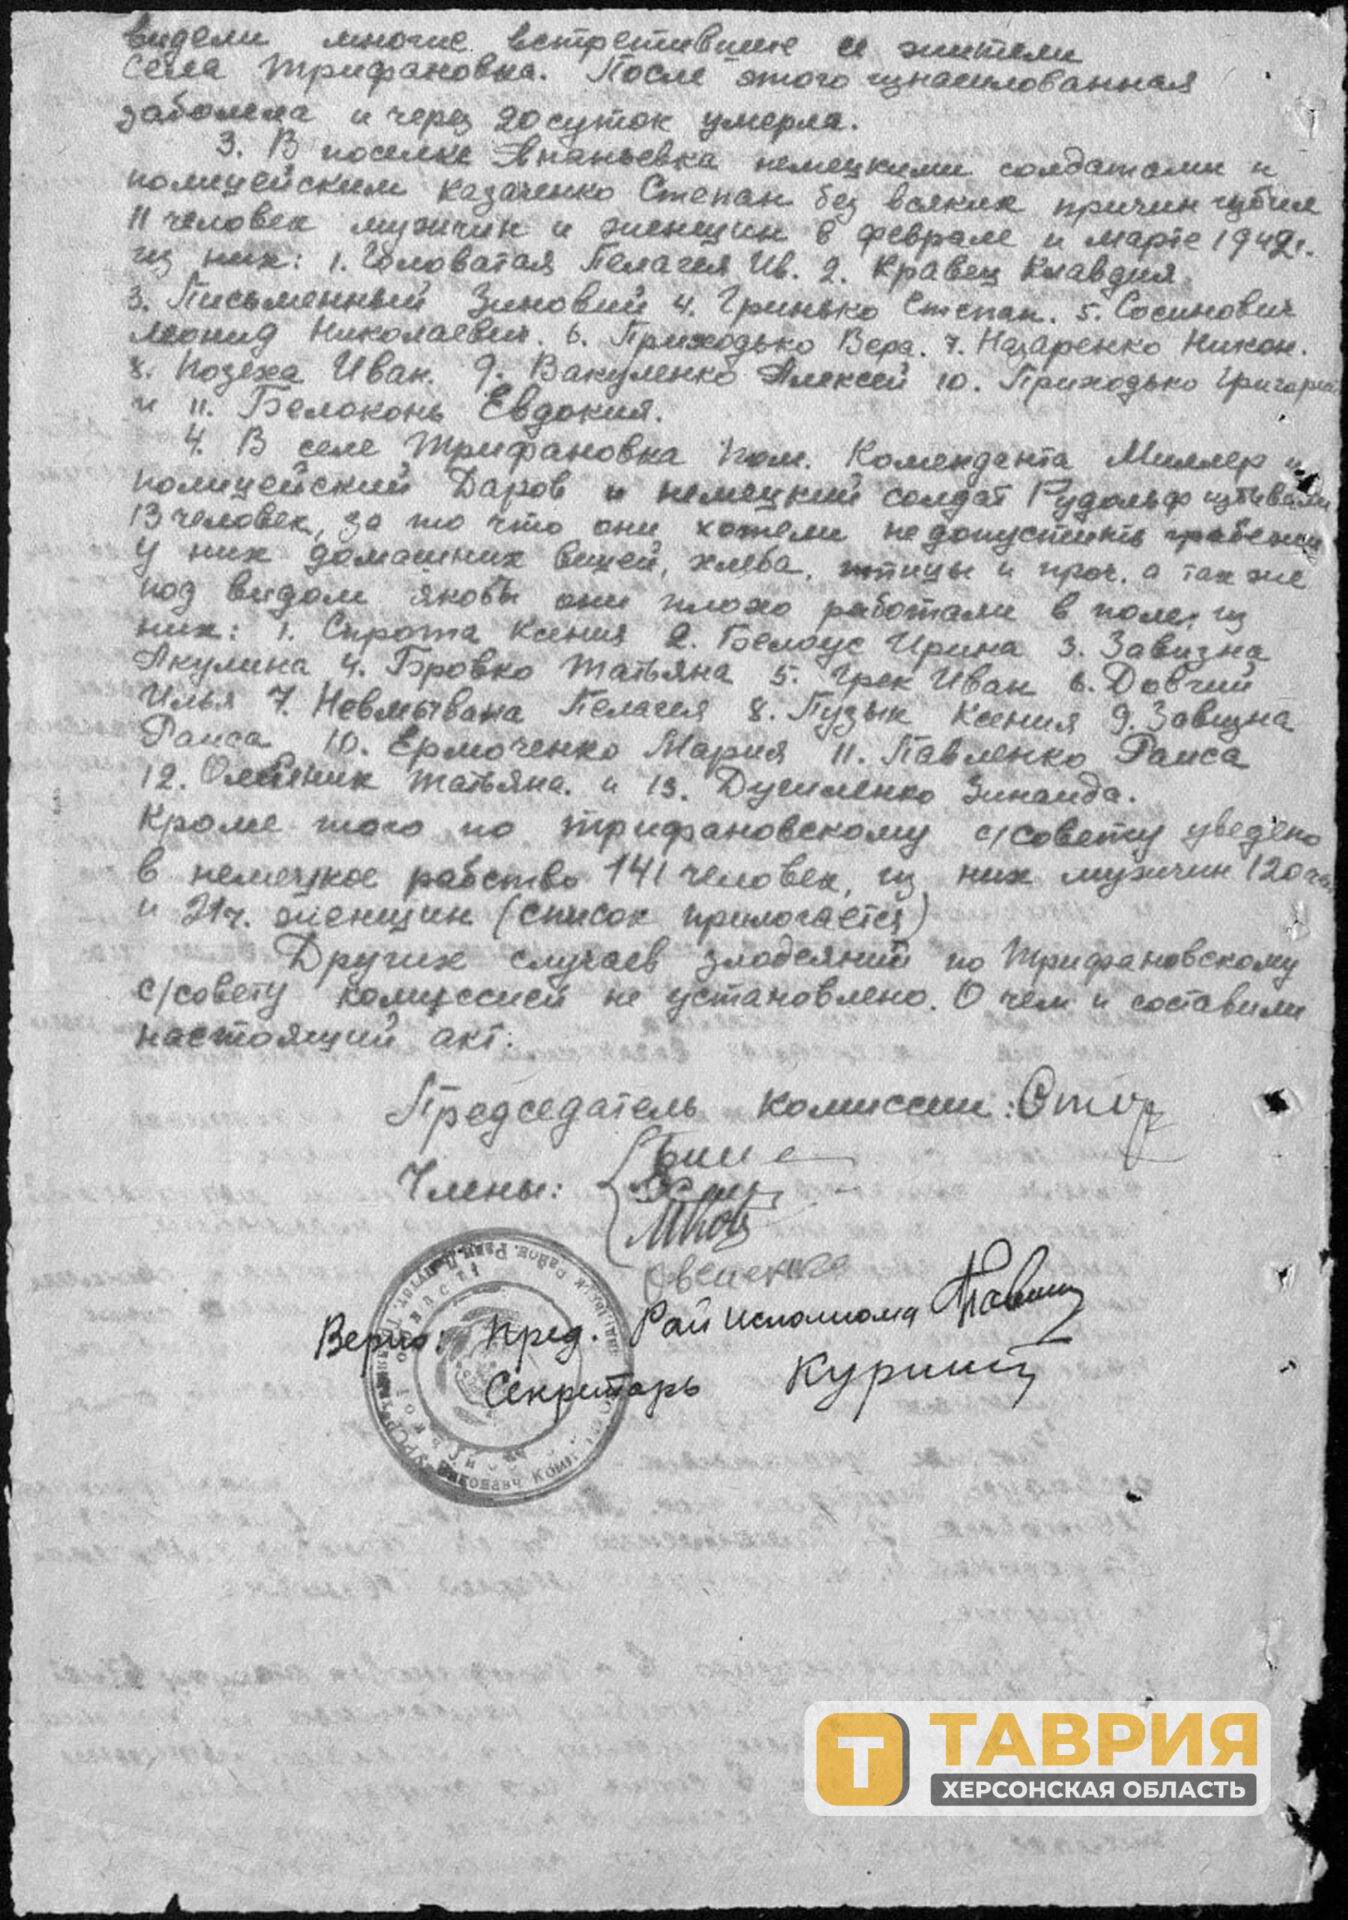 видели многие встретившие и жители
села Трифановка. После этого изнасилованная
заболела и через 20 суток умерла.
3. В поселке Ананьевка немецкими солдатами и
полицейским Казаченко Степан без всяких причин
11 человек мужчин и женщин в феврале и марте 1942г.
из них: 1. Головатая Пелагея Ив. 2. Кравец Клавдия
3. Письменный Зиновий 4. Гринько Степан. 5. Сосинович
Леонид Николаевич. 6. Приходько Вера. 7. Назаренко Никон.
8. Иван. 9. Вакуленко Алексей 10. Приходько Григорий
и 11. Белоконь Евдокия.
4. В селе Трифановка пом. Коменданта Миллер и
полицейский Даров и немецкий солдат Рудольф избивали
13 человек, за то что они хотели недопустить грабежи
у них домашних вещей, хлеба, птицы и проч. а так же
под видом якобы они плохо работали в поле, из
них: 1. Сирота Ксения 2. Белоус Ирина 3. Завизна
Акулина 4. Бровко Татьяна 5. Грек Иван 6. Довгий
Илья 7. Невмывана Пелагея 8. Пузык Ксения 9. Завизна
Раиса 10. Ермоченко Мария 11. Павленко Раиса
12. Олейник Татьяна. и 13. Зинаида.
Кроме того по Трифановскому с/совету уведено
в немецкое рабство 141 человек, из них мужчин 120 чел.
и 21 ч. женщин (список прилогается)
Других случаев злодеяний по Трифановскому
с/совету комиссией не установлено. О чем и составили
настоящий акт.
Председатель комиссии:
Члены:
Верно: Пред. Райисполкома
Секретарь Куриш
ТАВРИЯ
ХЕРСОНСКАЯ ОБЛАСТЬ